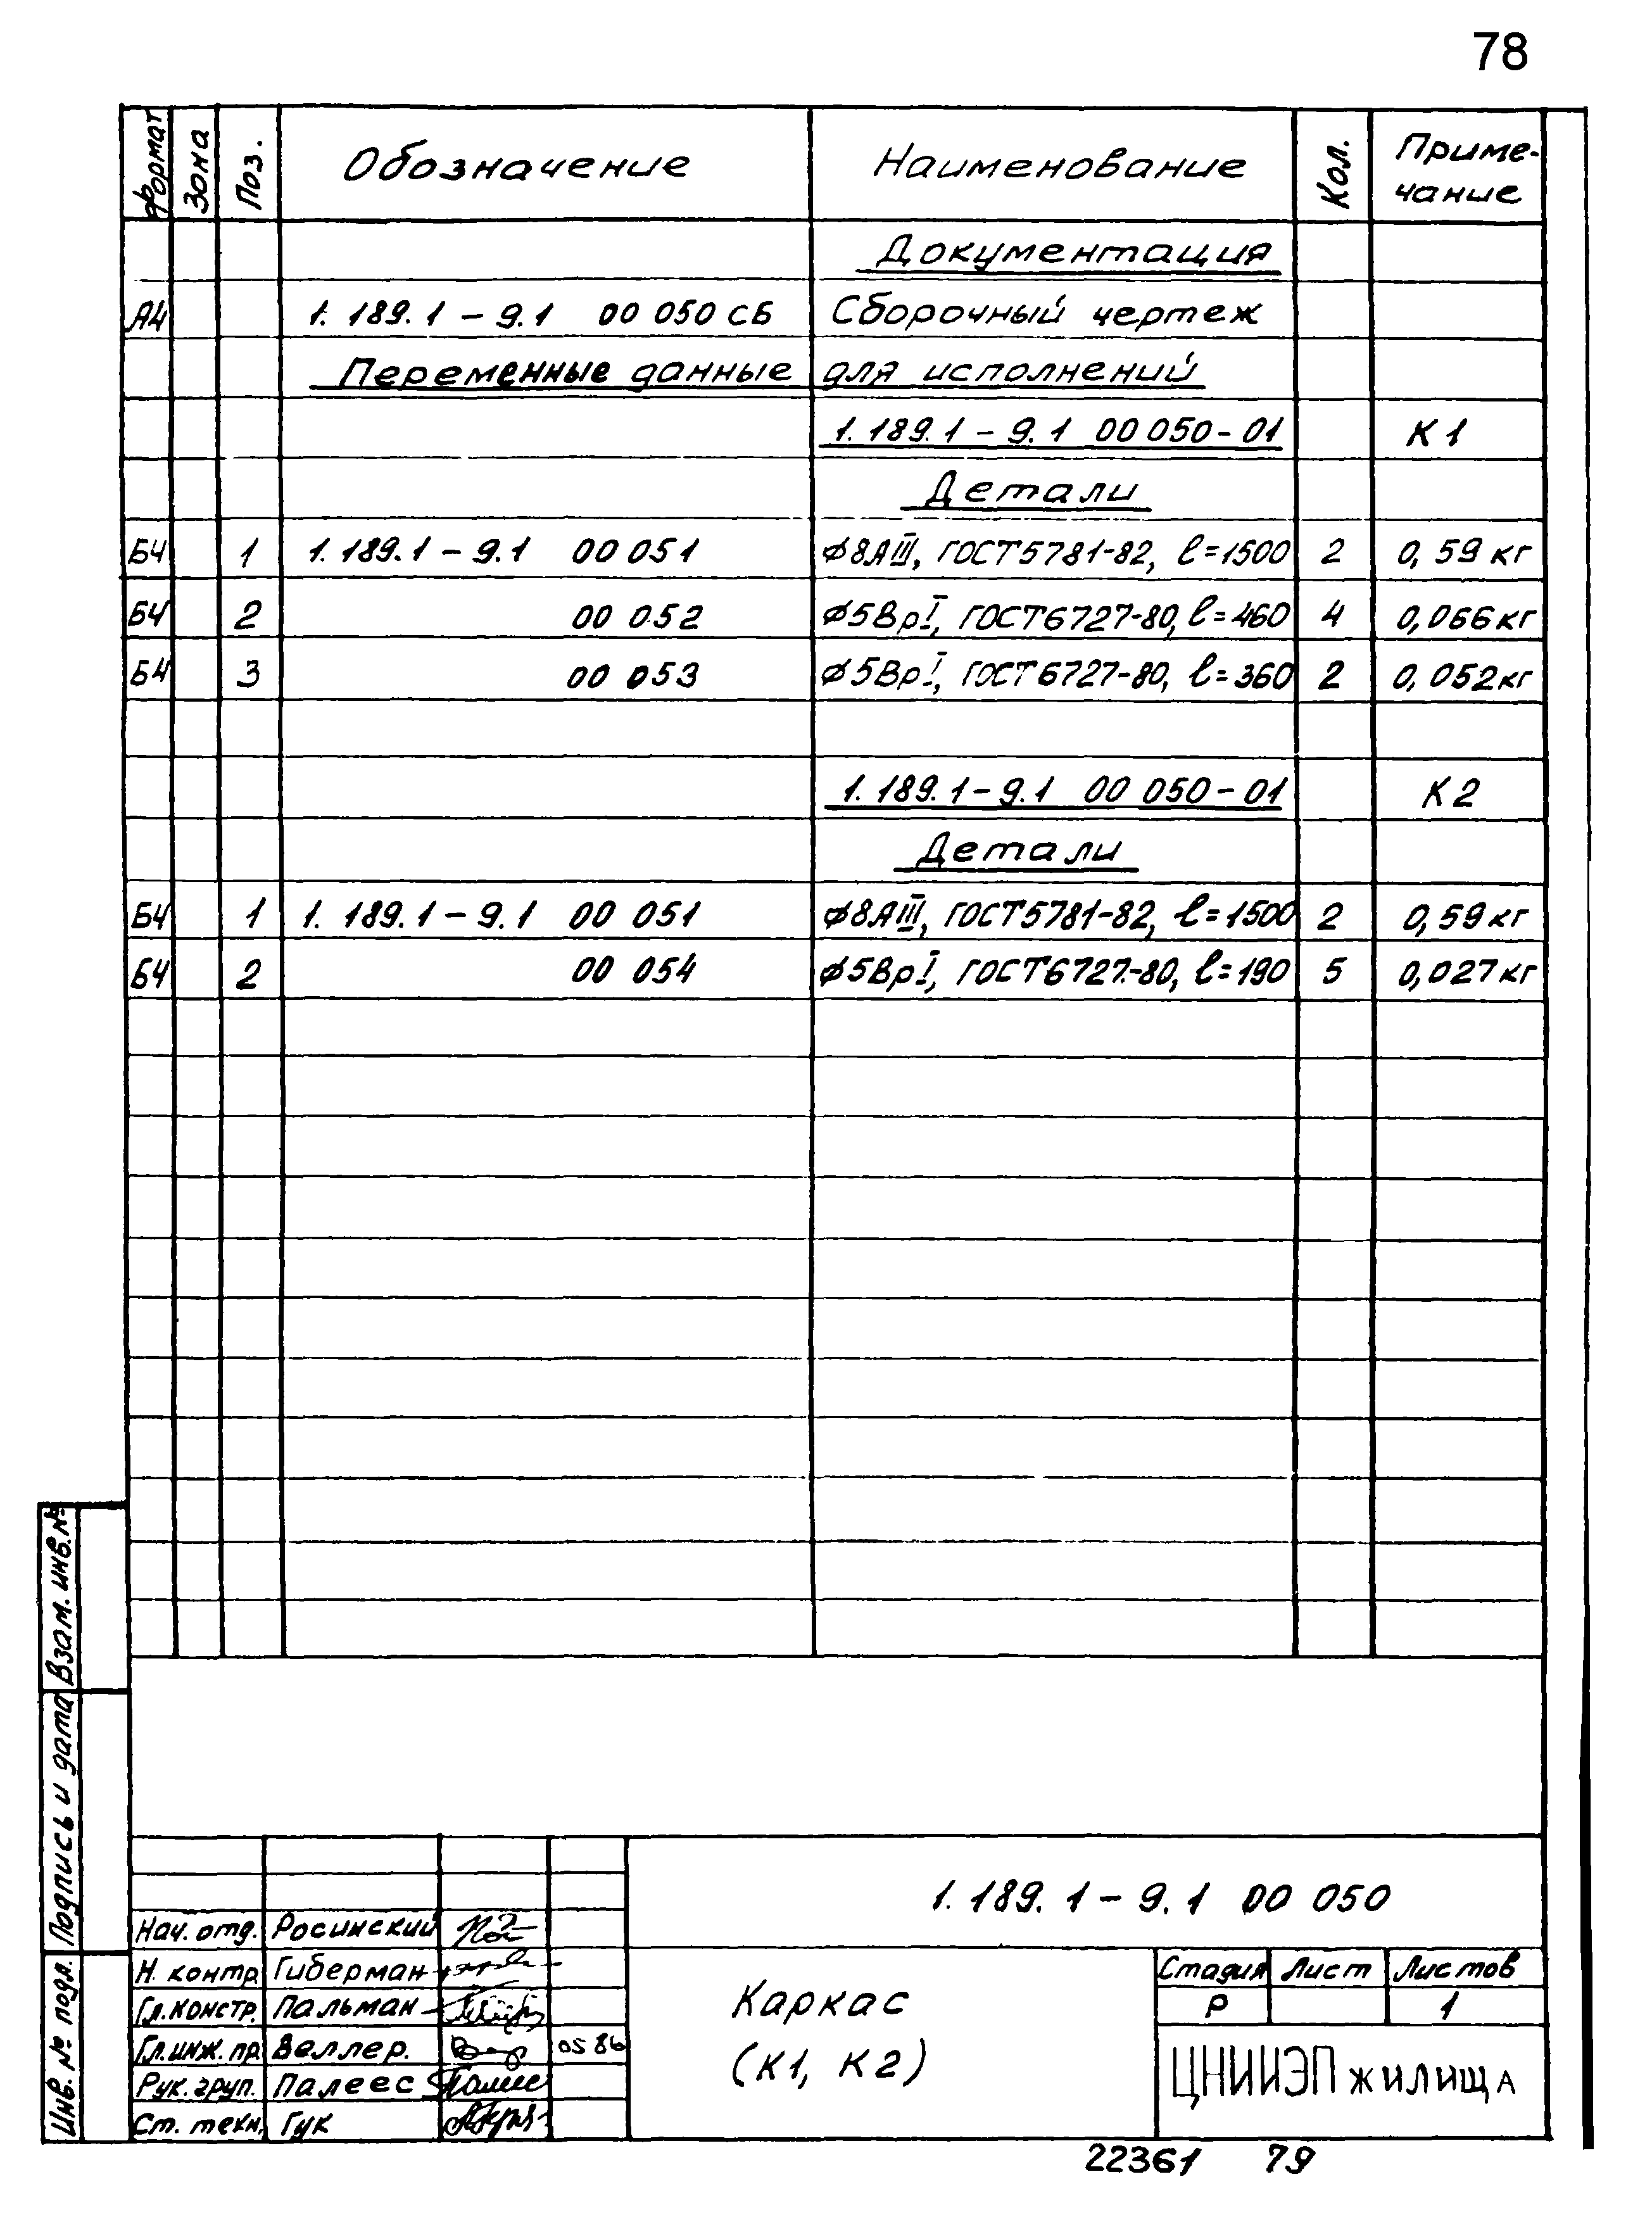 78
Формат Зона Поз. Обозначение Наименование Кол. Приме-
чание
Документация
А4 1.189.1-9.1 00 050 СБ Сборочный чертеж
Переменные данные для исполнений
1.189.1-9.1 00 050-01 К1
Детали
БЧ 1 1.189.1-9.1 00 051 ⌀8АIII, ГОСТ5781-82, ℓ=1500 2 0,59кг
БЧ 2 00 052 ⌀5ВрI, ГОСТ6727-80, ℓ=460 4 0,066кг
БЧ 3 00 053 ⌀5ВрI, ГОСТ6727-80, ℓ=360 2 0,052кг
1.189.1-9.1 00 050-01 К2
Детали
БЧ 1 1.189.1-9.1 00 051 ⌀8АIII, ГОСТ5781-82, ℓ=1500 2 0,59кг
БЧ 2 00 054 ⌀5ВрI, ГОСТ6727-80, ℓ=190 5 0,027кг
Взам. инв.№
Подпись и дата
Инв. № подл.
1.189.1-9.1 00 050
Нач. отд. Росинский
Н. контр Гиберман
Гл.констр. Пальман
Гл.инж.пр. Веллер. 05 86
Рук. груп. Палеес
Ст. техн. Гук
Каркас
(К1, К2)
Стадия Лист Листов
Р 1
ЦНИИЭП жилища
22361 79